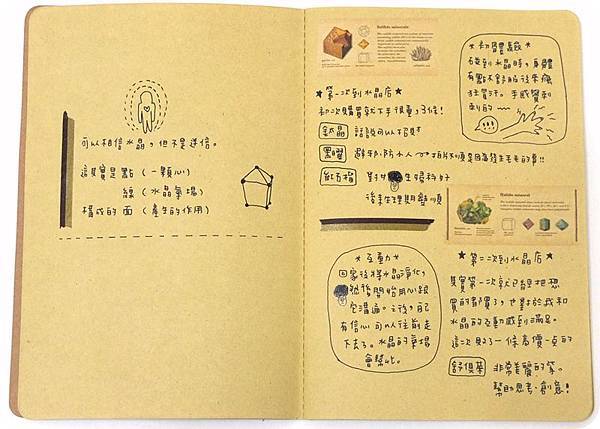 可以相信水晶，但不是迷信。
這其實是點（一顆心）
線（水晶氣場）
構成的面（產生的作用）
★第一次到水晶店★
初次購買就下手很重，3條！
鈦晶 話說可以招財
黑曜 避邪.防小人
紅石榴 對 生殖科好
後來生理期變順
★初體驗★
碰到水晶時，身體
有點不舒服後來瘋
狂冒汗。手感覺刺
刺的~~
★互動★
回家後將水晶淨化，
然後開始用心跟
它溝通。之後，自己
有信心可以往前走
下去了。水晶的氣場
會幫忙。
Halide mineral
★第二次到水晶店★
其實第一次就已經把想
買的都買了，也對於我和
水晶的互動感到滿足。
這次買了一條高價一點的
舒俱萊 非常美麗的紫。
幫助思考.創意！